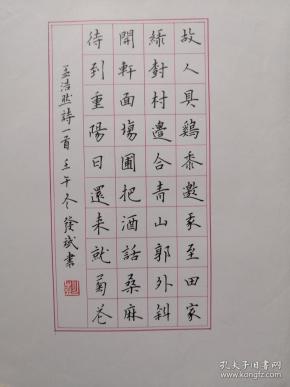 故人具鷄黍邀我至田家
綠樹村邊合青山郭外斜
開軒面場圃把酒話桑麻
待到重陽日還来就菊花
孟浩然詩一首壬午冬發斌書
孔夫子旧书网